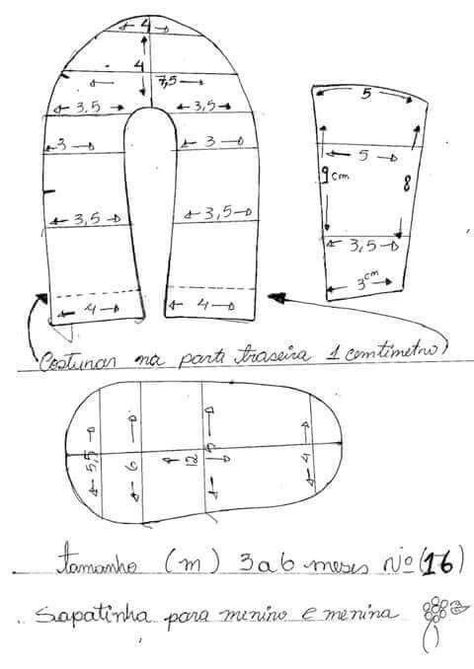 4
4 7,5
3,5 3,5
3 3
3,5 3,5
4 4
5
5
9 cm 8
3,5
3 cm
Costurar na parti traseira 1 centimetro
5,5 6 12 5 4
tamanho (m) 3 a 6 meses Nº (16)
Sapatinha para menino e menina